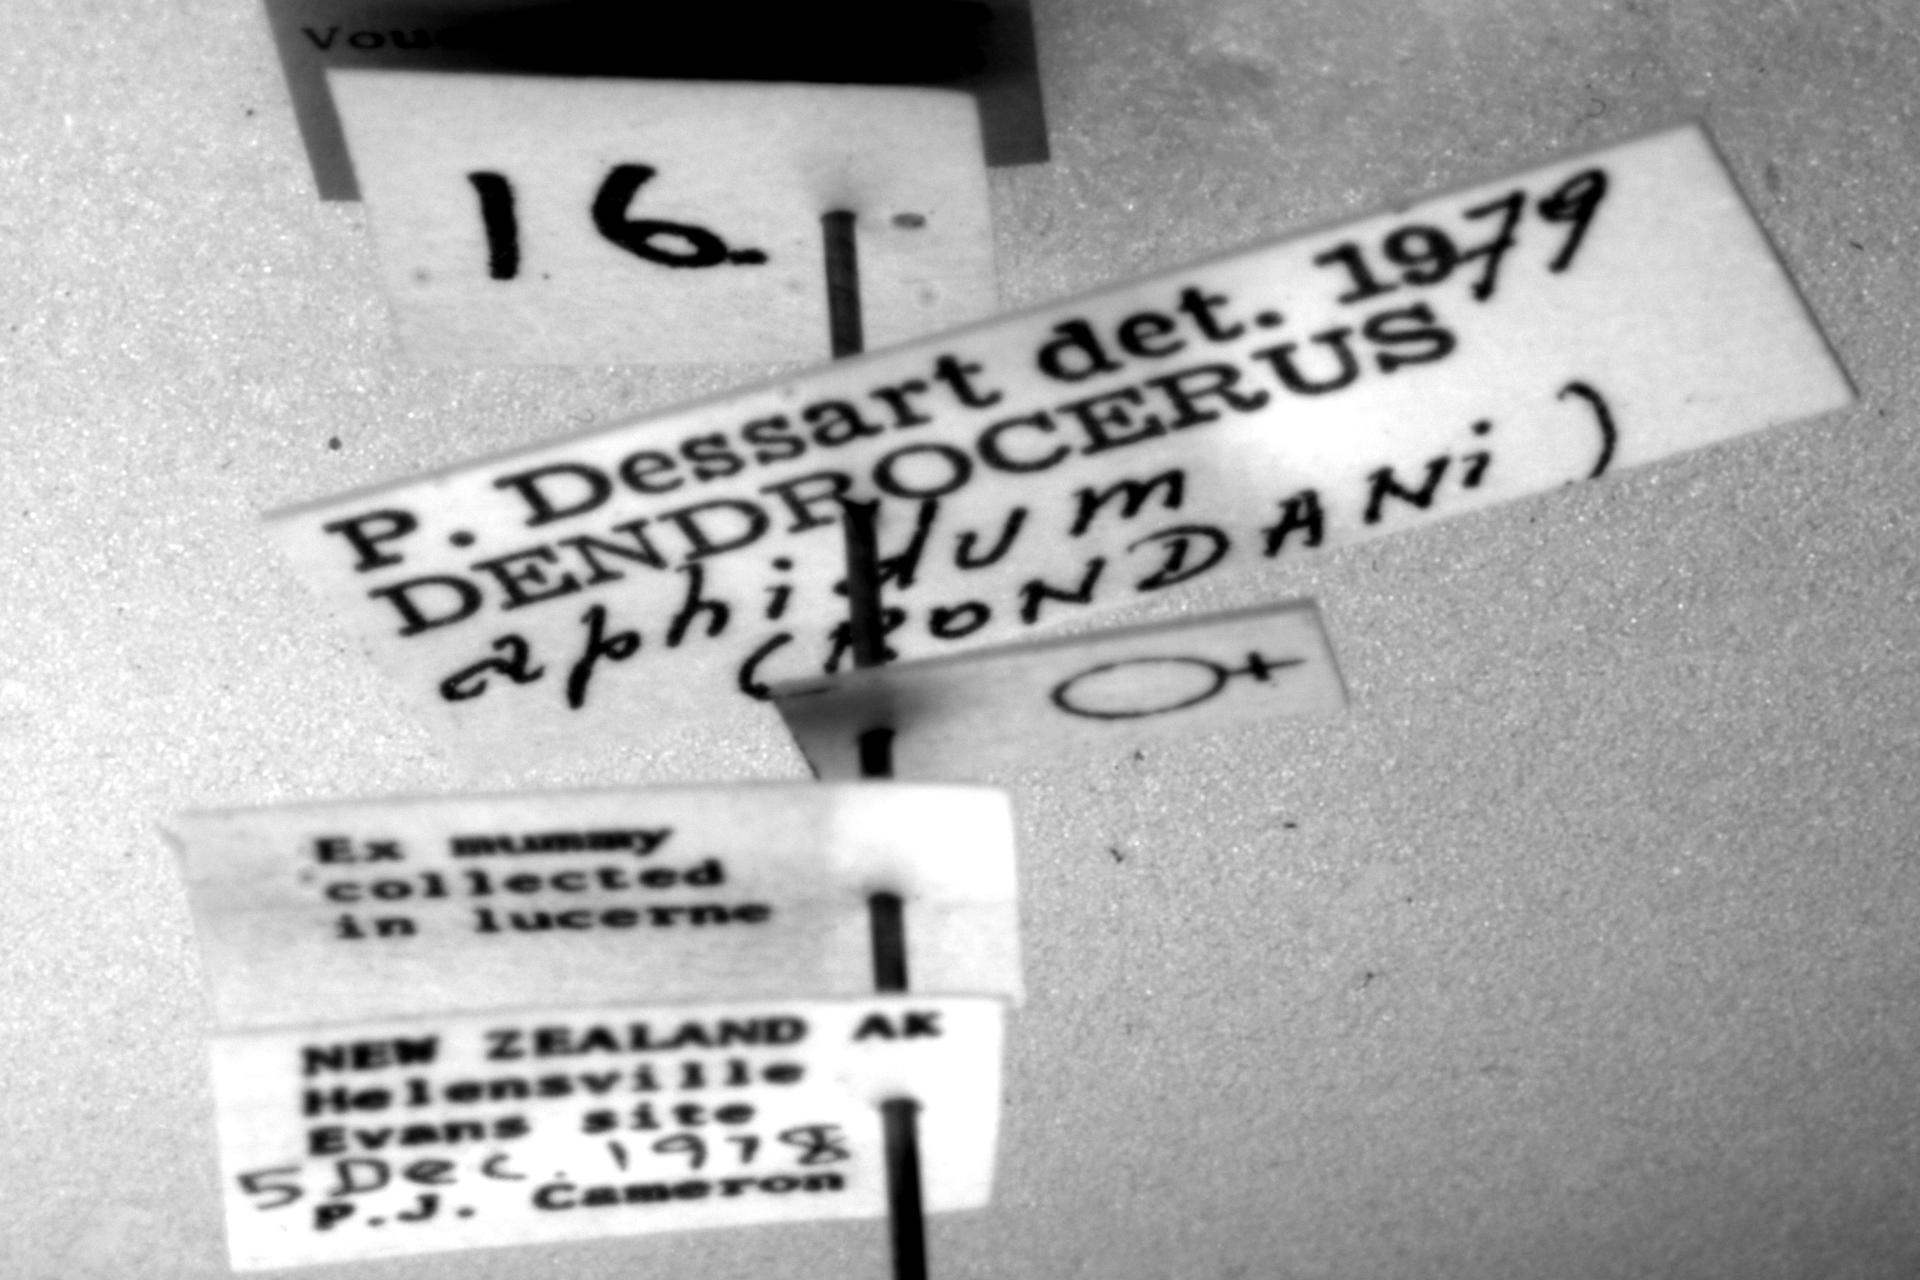 16.
P. Dessart det. 1979
DENDROCERUS
aphidum
(RONDANi)
♀
Ex mummy
collected
in lucerne
NEW ZEALAND AK
Helensville
Evans site
5 Dec. 1978
P.J. Cameron